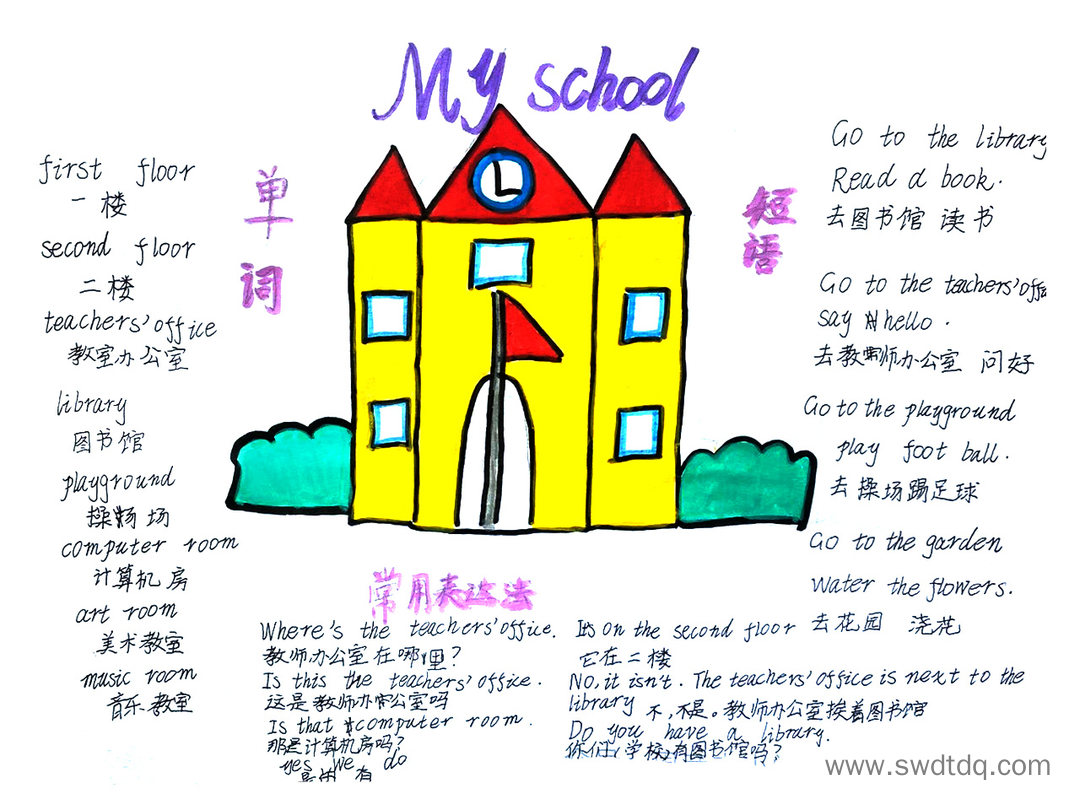 My school
单词
first floor
一楼
second floor
二楼
teachers' office
教室办公室
library
图书馆
playground
操场
computer room
计算机房
art room
美术教室
music room
音乐教室
短语
Go to the library
Read a book.
去图书馆 读书
Go to the teachers' office
say hello.
去教师办公室 问好
Go to the playground
play foot ball.
去操场踢足球
Go to the garden
water the flowers.
去花园 浇花
常用表达法
Where's the teachers' office.
教师办公室在哪里?
Is this the teachers' office.
这是教师办公室吗
Is that computer room.
那是计算机房吗?
yes we do
有
It's on the second floor
它在二楼
No, it isn't. The teachers' office is next to the
library 不,不是。教师办公室挨着图书馆
Do you have a library.
你们学校有图书馆吗?
www.swdtdq.com